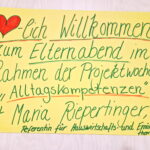 lich Willkommen
zum Elternabend im
Rahmen der Projektwoche
"Alltagskompetenzen"
mit Maria Riepertinger
Referentin für Hauswirtschafts- und